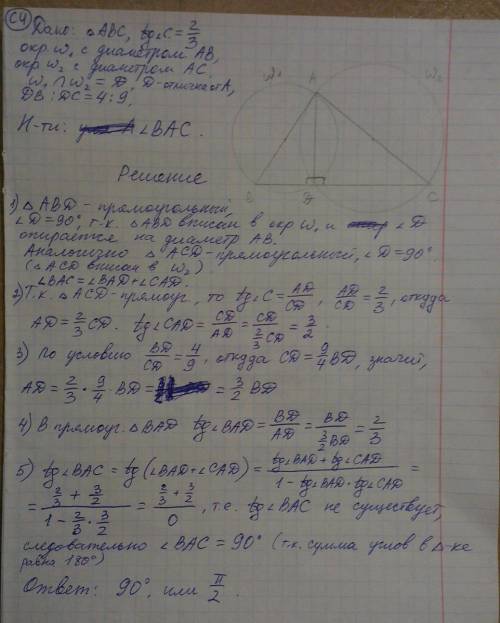 С4
Дано: △ABC, tg∠C = 2/3
окр w₁ с диаметром AB,
окр w₂ с диаметром AC.
w₁ ∩ w₂ = D, D - отлична от A,
DB : DC = 4 : 9.
Н-ти: ∠BAC.
w₁ A w₂
B D C
Решение
1) △ABD - прямоугольный,
∠D = 90°, т.к. △ABD вписан в окр w₁ и ∠D
опирается на диаметр AB.
Аналогично △ACD - прямоугольный, ∠D = 90°
(△ACD вписан в w₂)
∠BAC = ∠BAD + ∠CAD.
2) Т.к. △ACD - прямоуг, то tg∠C = AD/CD, AD/CD = 2/3, откуда
AD = 2/3 CD. tg∠CAD = CD/AD = CD/(2/3 CD) = 3/2.
3) По условию BD/CD = 4/9, откуда CD = 9/4 BD, значит,
AD = 2/3 · 9/4 · BD = 3/2 BD
4) В прямоуг. △BAD tg∠BAD = BD/AD = BD/(3/2 BD) = 2/3
5) tg∠BAC = tg(∠BAD + ∠CAD) = (tg∠BAD + tg∠CAD)/(1 - tg∠BAD · tg∠CAD) =
= (2/3 + 3/2)/(1 - 2/3 · 3/2) = (2/3 + 3/2)/0, т.е. tg∠BAC не существует,
следовательно ∠BAC = 90° (т.к. сумма углов в △-ке
равна 180°)
Ответ: 90°, или π/2.